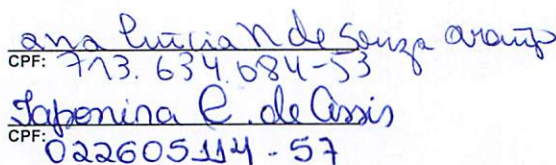 ana Lúcia N de Souza araujo
CPF: 713.634.684-53
Japonina C. de Assis
CPF: 022605114-57